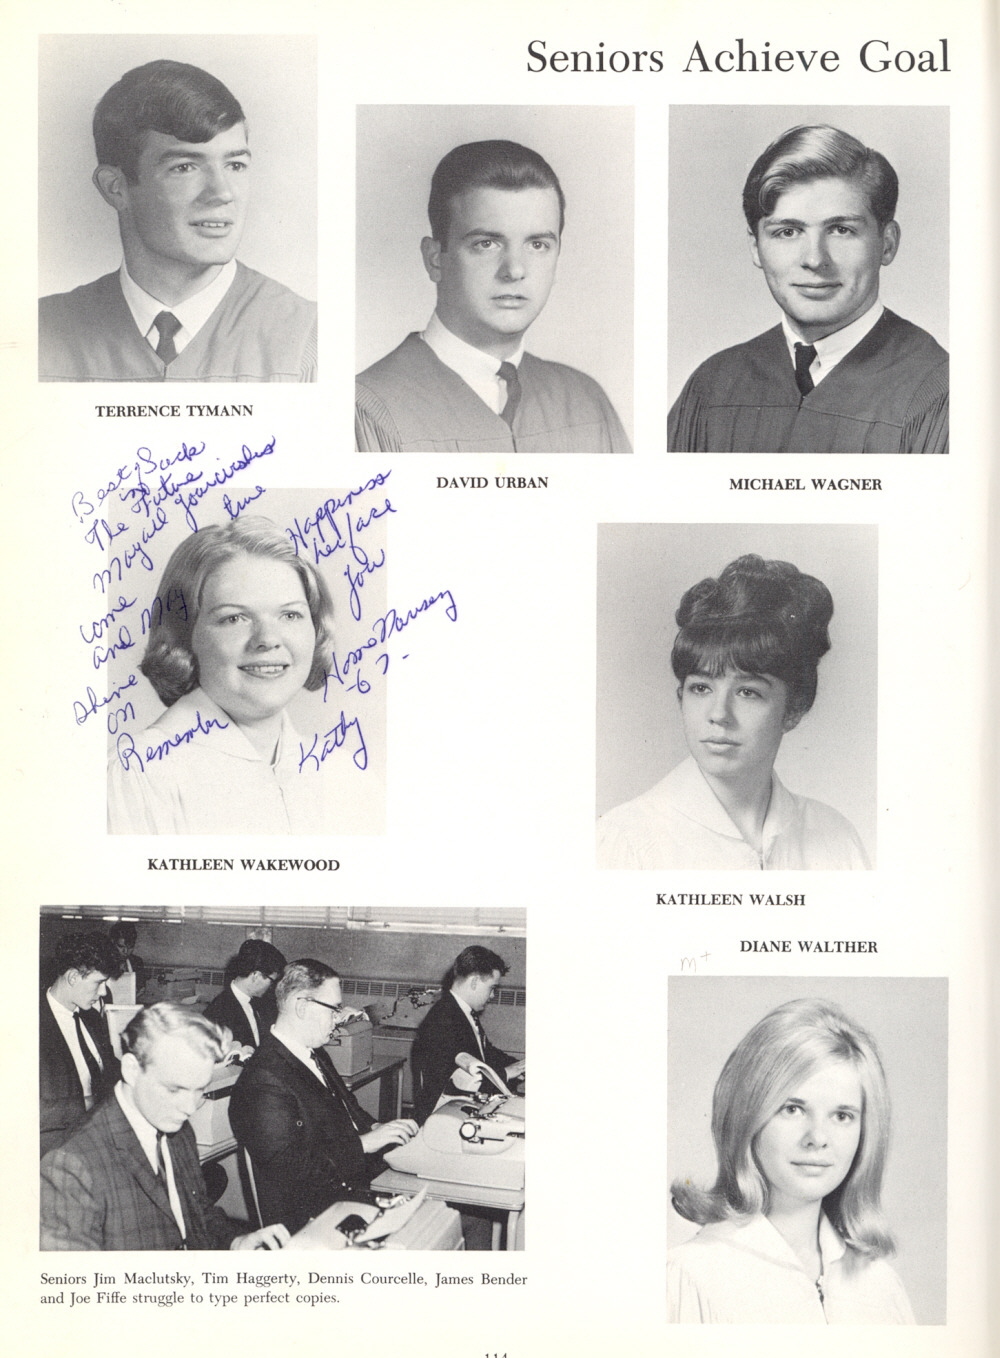 Seniors Achieve Goal
TERRENCE TYMANN
DAVID URBAN
MICHAEL WAGNER
Best Luck
in
The Future
May all your wishes
come true
and May
Happiness
face
you
Shine
on
Remember
67-
Kathy
KATHLEEN WAKEWOOD
KATHLEEN WALSH
DIANE WALTHER
m +
Seniors Jim Maclutsky, Tim Haggerty, Dennis Courcelle, James Bender
and Joe Fiffe struggle to type perfect copies.
114